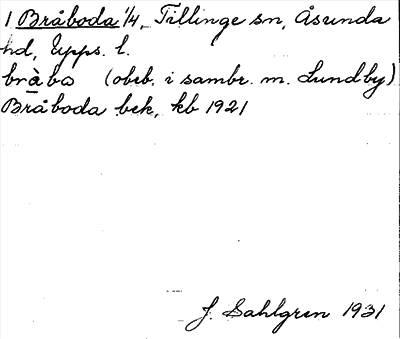 1 Bråboda 1/4, Tillinge sn, Åsunda
hd, Upps. l.
bràbo (obeb. i sambr. m. Lundby)
Bråboda bek, kb 1921
J. Sahlgren 1931